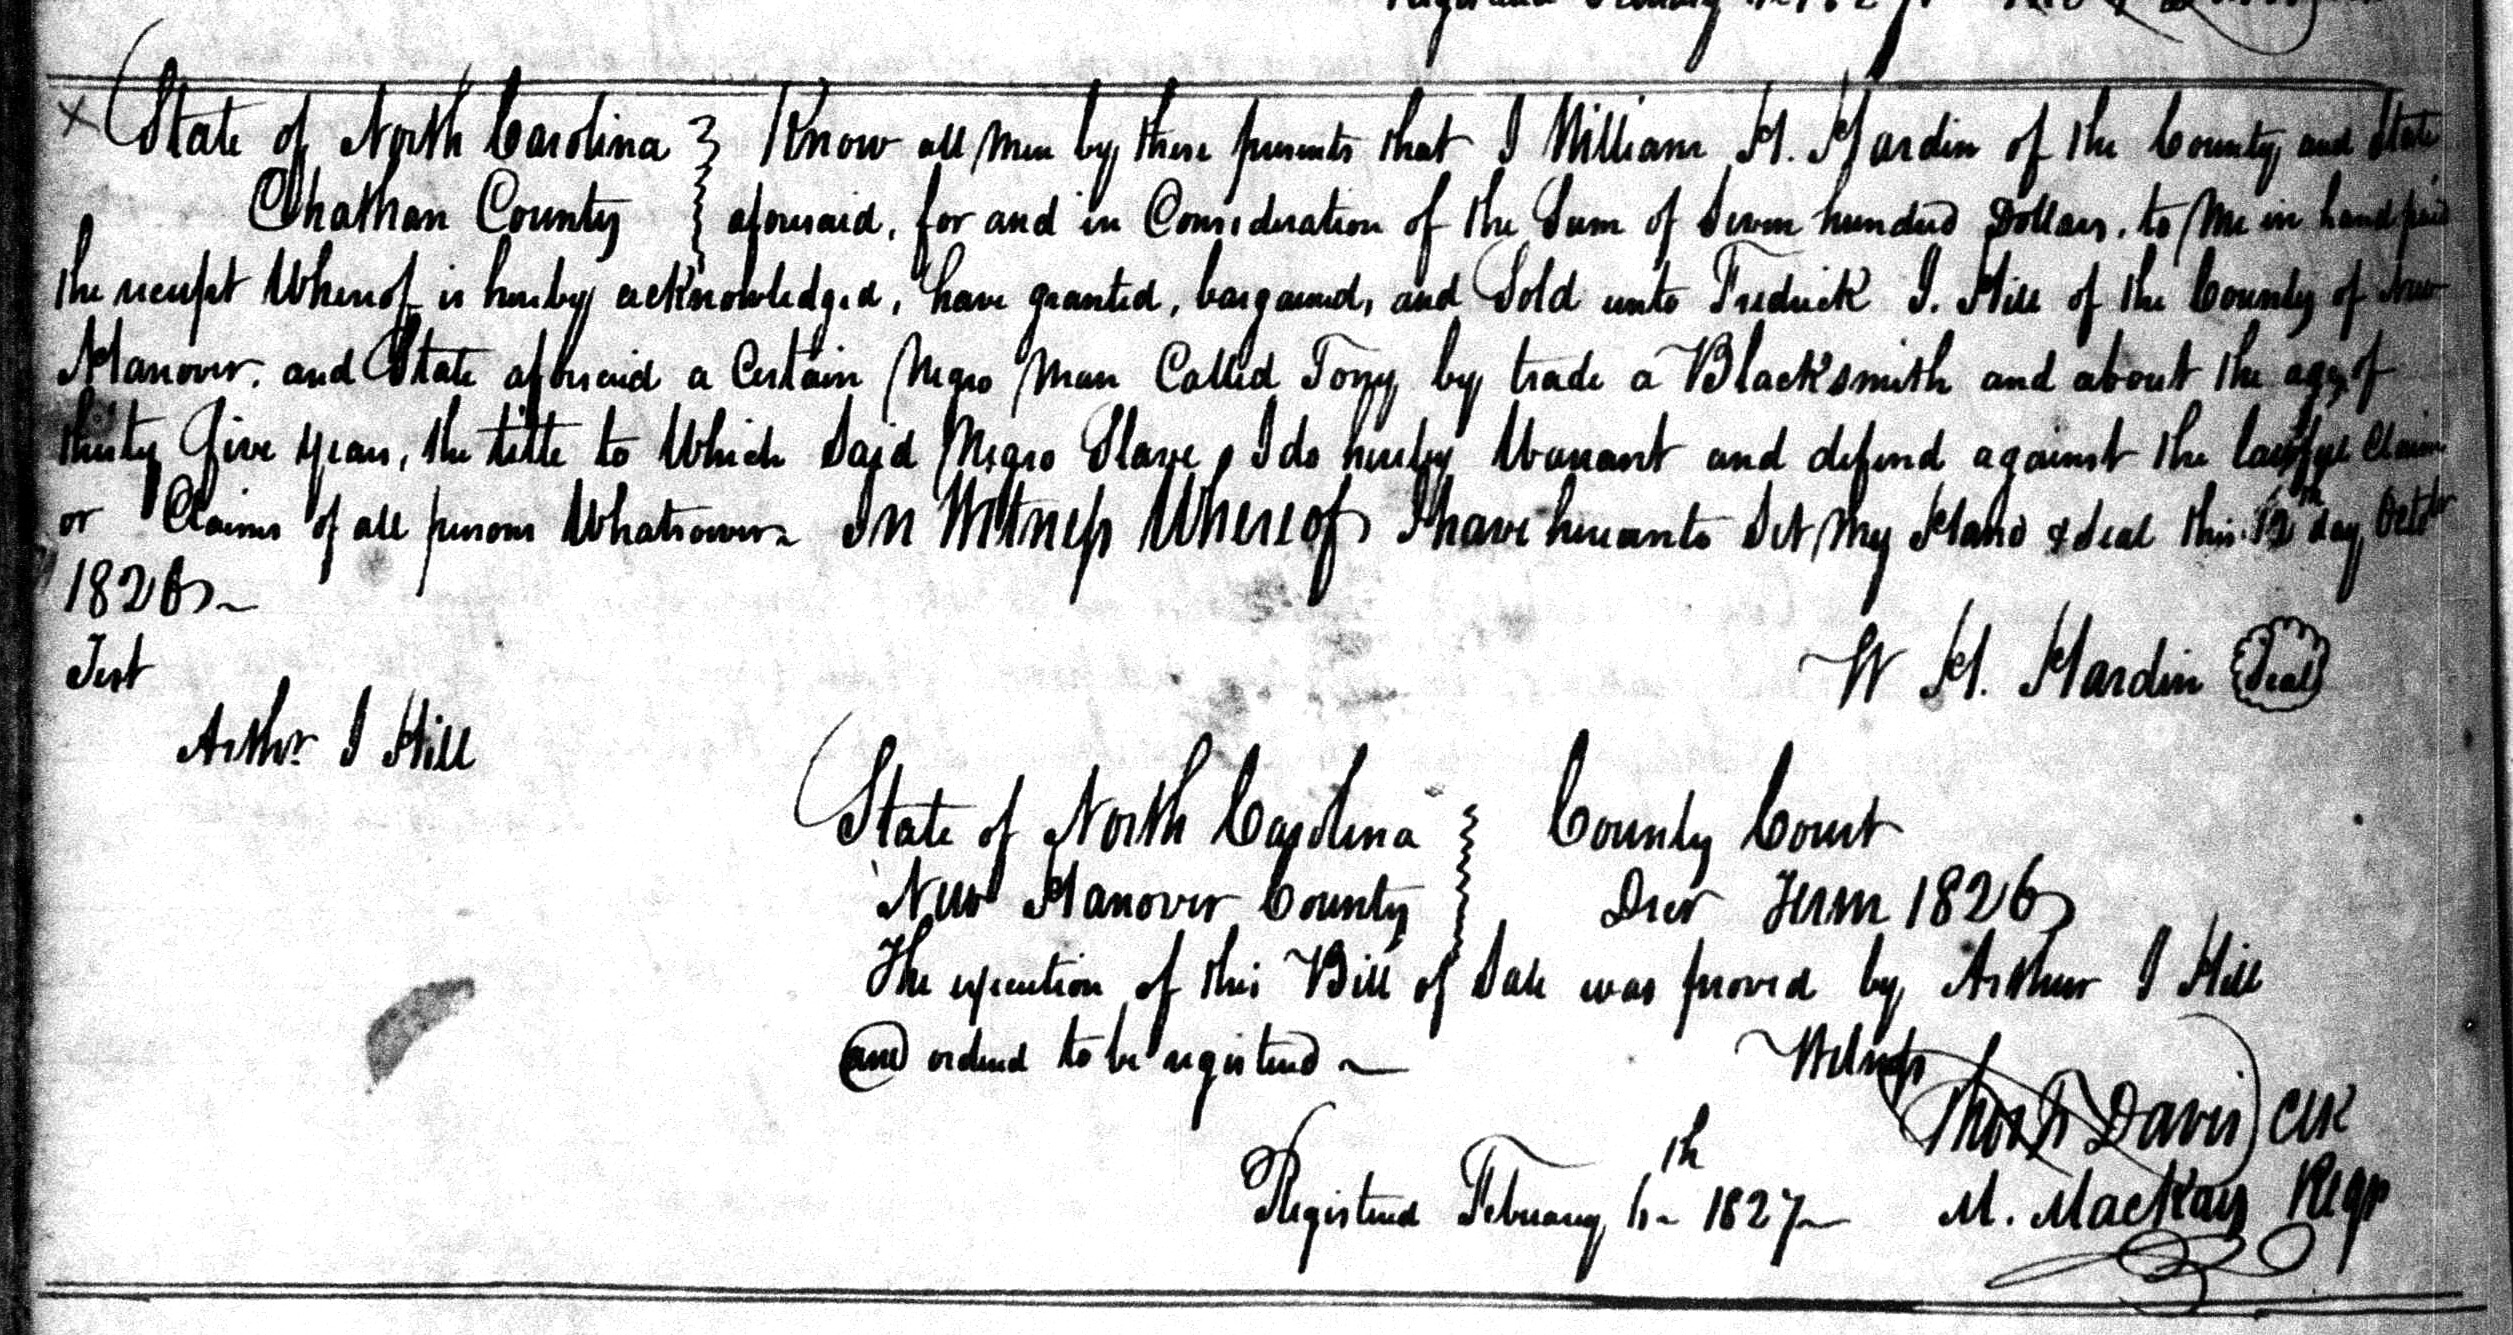 State of North Carolina } Know all men by these presents that I William H. Hardin of the County, and State
Chatham County } aforesaid, for and in Consideration of the Sum of Seven hundred Dollars, to me in hand paid
the receipt Whereof is hereby acknowledged, have granted, bargained, and Sold unto Fredrick J. Hill of the County of New
Hanover, and State aforesaid a Certain Negro Man Called Tony by trade a Blacksmith and about the age of
thirty five years, the title to Which Said Negro Slave, I do hereby Warrant and defend against the lawful Claim
or Claims of all persons Whatsoever~ In Witness Whereof I have hereunto Set My Hand & Seal this 12th day, Octobr
1826~
Test
W H. Hardin Seal
Arthr. J Hill
State of North Carolina } County Court
New Hanover County } Decr Term 1826
The execution of this Bill of Sale was proved by Arthur J Hill
and ordered to be registered ~ Witness
Thos F Davis Clk
Registered February 6th 1827~ M. MacKay Regr